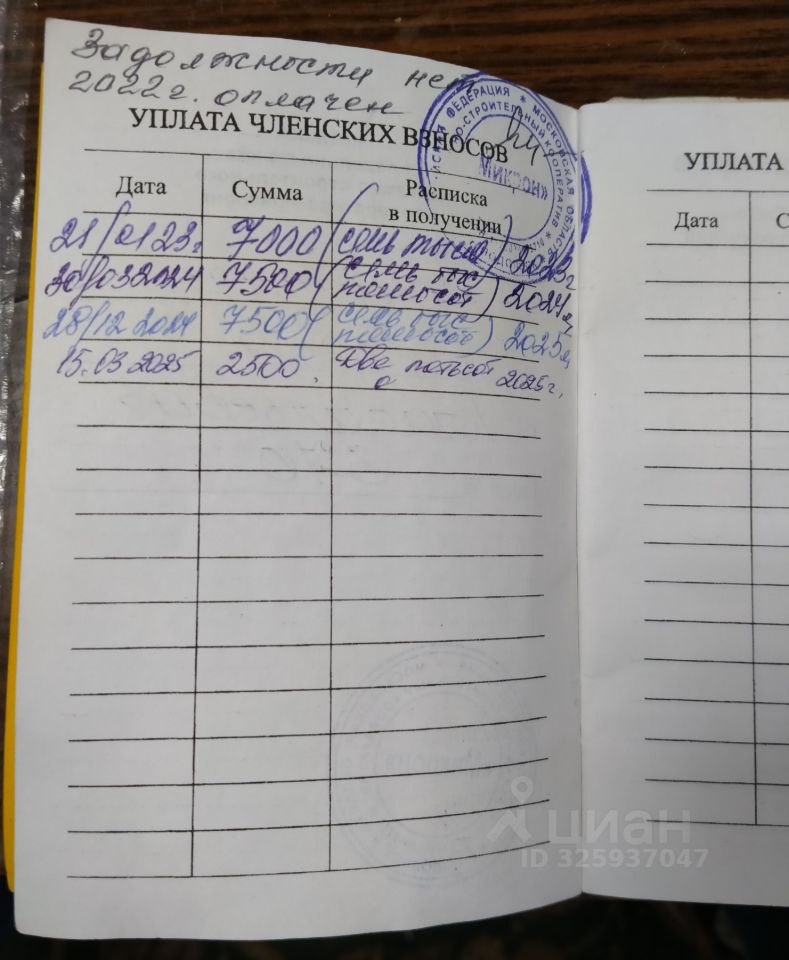 Задолжности нет
2022г. оплачен
УПЛАТА ЧЛЕНСКИХ ВЗНОСОВ
Дата Сумма Расписка в получении
21/01 23г. 7000 (семь тысяч) 2023г
30/03 2024 7500 (семь тыс пятьсот) 2024г,
28/12 2024 7500 (семь тыс пятьсот) 2025г,
15.03 2025 2500. Две пятьсот 2025г,
ФЕДЕРАЦИЯ * МОСКОВСКАЯ ОБЛАСТЬ *
О-СТРОИТЕЛЬНЫЙ КООПЕРАТИВ *
МИКРОН»
УПЛАТА
Дата С
циан
ID 325937047